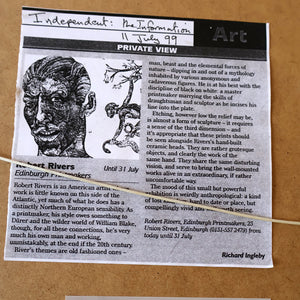 Independent: the Information
11 July 99
Art
PRIVATE VIEW
Robert Rivers
Until 31 July
Edinburgh Printmakers
Robert Rivers is an American artist
work is little known on this side of the
Atlantic, yet much of what he does has a
distinctly Northern European sensibility. As
a printmaker, his style owes something to
Dürer and the wilder world of William Blake,
though, for all these connections, he's very
much his own man and working,
unmistakably, at the end if the 20th century.
River's themes are old fashioned ones –
man, beast and the elemental forces of
nature – dipping in and out of a mythology
inhabited by various anonymous and
cadaverous figures. He is at his best with the
discipline of black on white: a master
printmaker marrying the skills of
draughtsman and sculptor as he incises his
line into the plate.
Etching, however low the relief may be,
is almost a form of sculpture – it requires
a sense of the third dimension – and
it's appropriate that these prints should
be seen alongside Rivers's hand-built
ceramic heads. They are rather grotesque
objects, and clearly the work of the
same hand. They share the same disturbing
vision, and serve to bring the wall-mounted
works alive in an extraordinary, if rather
uncomfortable way.
The mood of this small but powerful
exhibition is weirdly anthropological: a kind
of lost hard to date or place, but
compellingly vivid and worth seeing.
Robert Rivers, Edinburgh Printmakers, 23
Union Street, Edinburgh (0131-557 2479) from
today until 31 July
Richard Ingleby